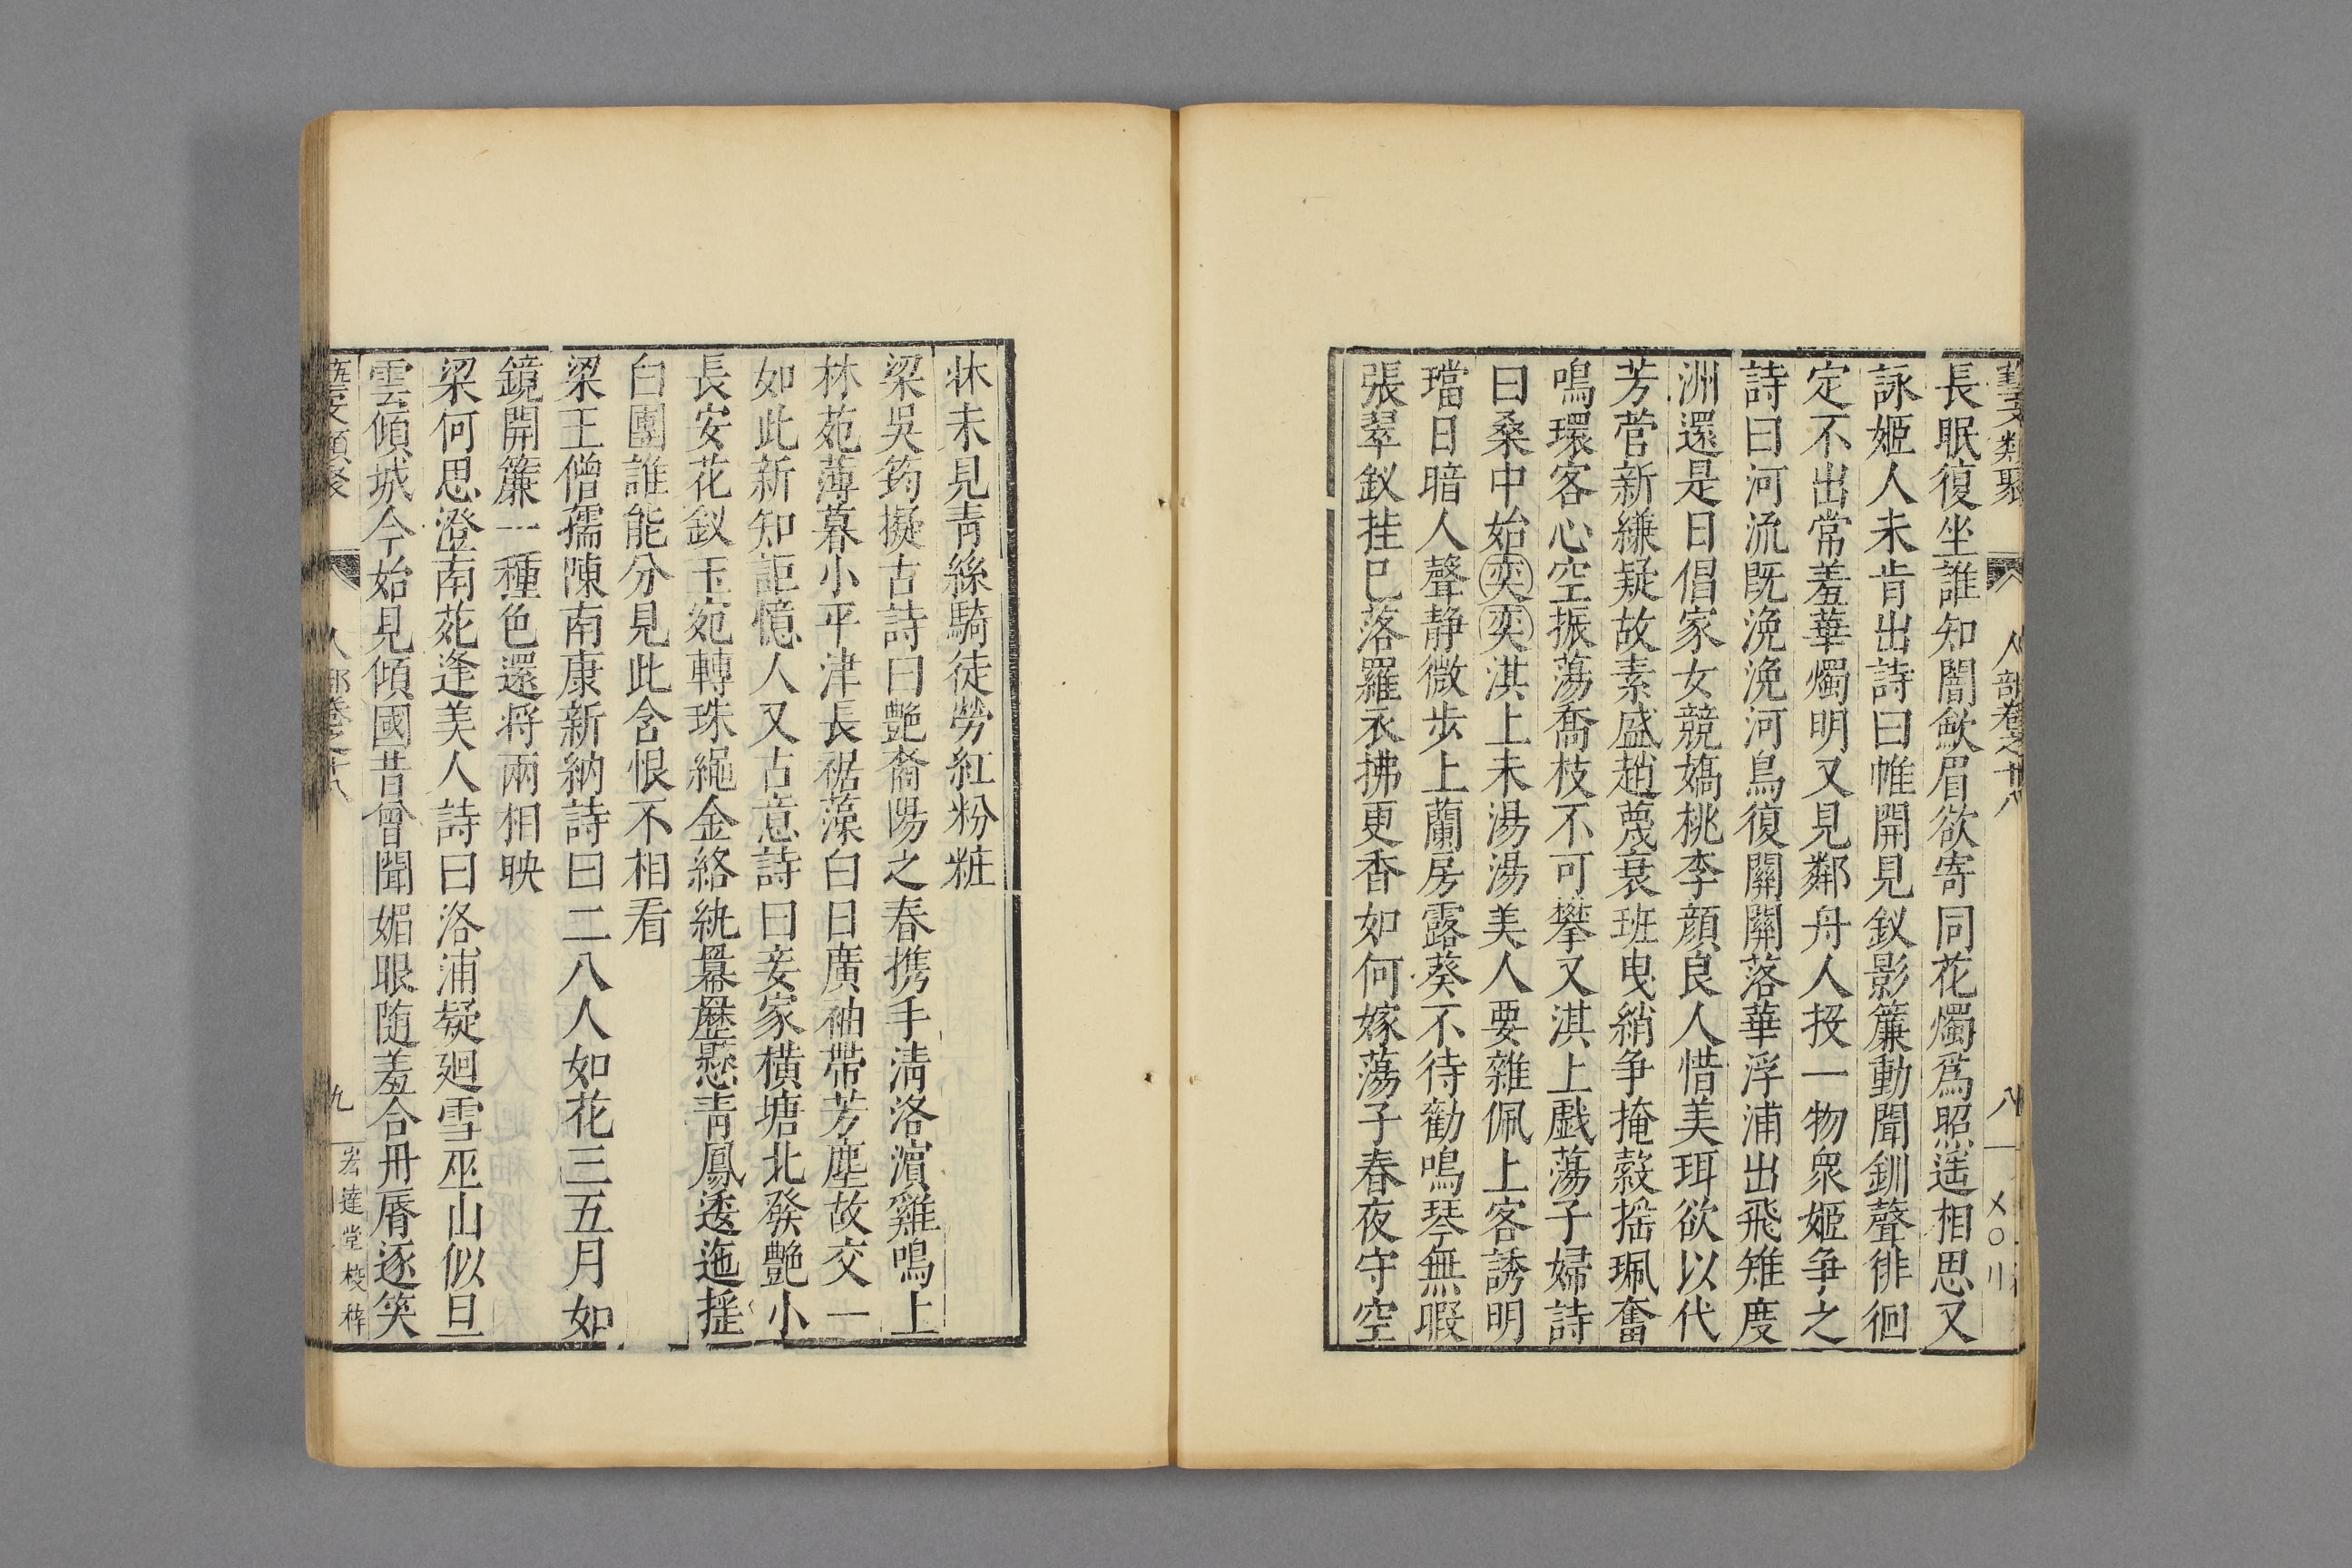 藝文類聚 人部卷之十八 八
長眠復坐誰知闇歛眉欲寄同花燭爲照遥相思又
詠姬人未肯出詩曰帷開見釵影簾動聞釧聲徘徊
定不出常羞華燭明又見鄰舟人投一物衆姬争之
詩曰河流既浼浼河鳥復關關落華浮浦出飛雉度
洲還是日倡家女競嬌桃李顔良人惜美珥欲以代
芳菅新縑疑故素盛趙蔑衰班曳綃争掩縠揺珮奮
鳴環客心空振蕩喬枝不可攀又淇上戲蕩子婦詩
曰桑中始奕奕淇上未湯湯美人要雜佩上客誘明
璫日暗人聲静微歩上蘭房露葵不待勸鳴琴無暇
張翠釵挂已落羅衣拂更香如何嫁蕩子春夜守空
牀未見靑絲騎徒勞紅粉粧
梁吳筠擬古詩曰艷裔陽之春携手淸洛濵雞鳴上
林苑薄暮小平津長裾藻白日廣袖帶芳塵故交一
如此新知詎憶人又古意詩曰妾家橫塘北發艷小
長安花釵玉宛轉珠繩金絡紈羃歷懸靑鳳逶迤揺
白團誰能分見此含恨不相看
梁王僧孺陳南康新納詩曰二八人如花三五月如
鏡開簾一種色還将兩相映
梁何思澄南苑逢美人詩曰洛浦疑廻雪巫山似旦
雲傾城今始見傾國昔曾聞媚眼随羞合丹脣逐笑
藝文類聚 人部卷之十八 九 宏達堂校梓